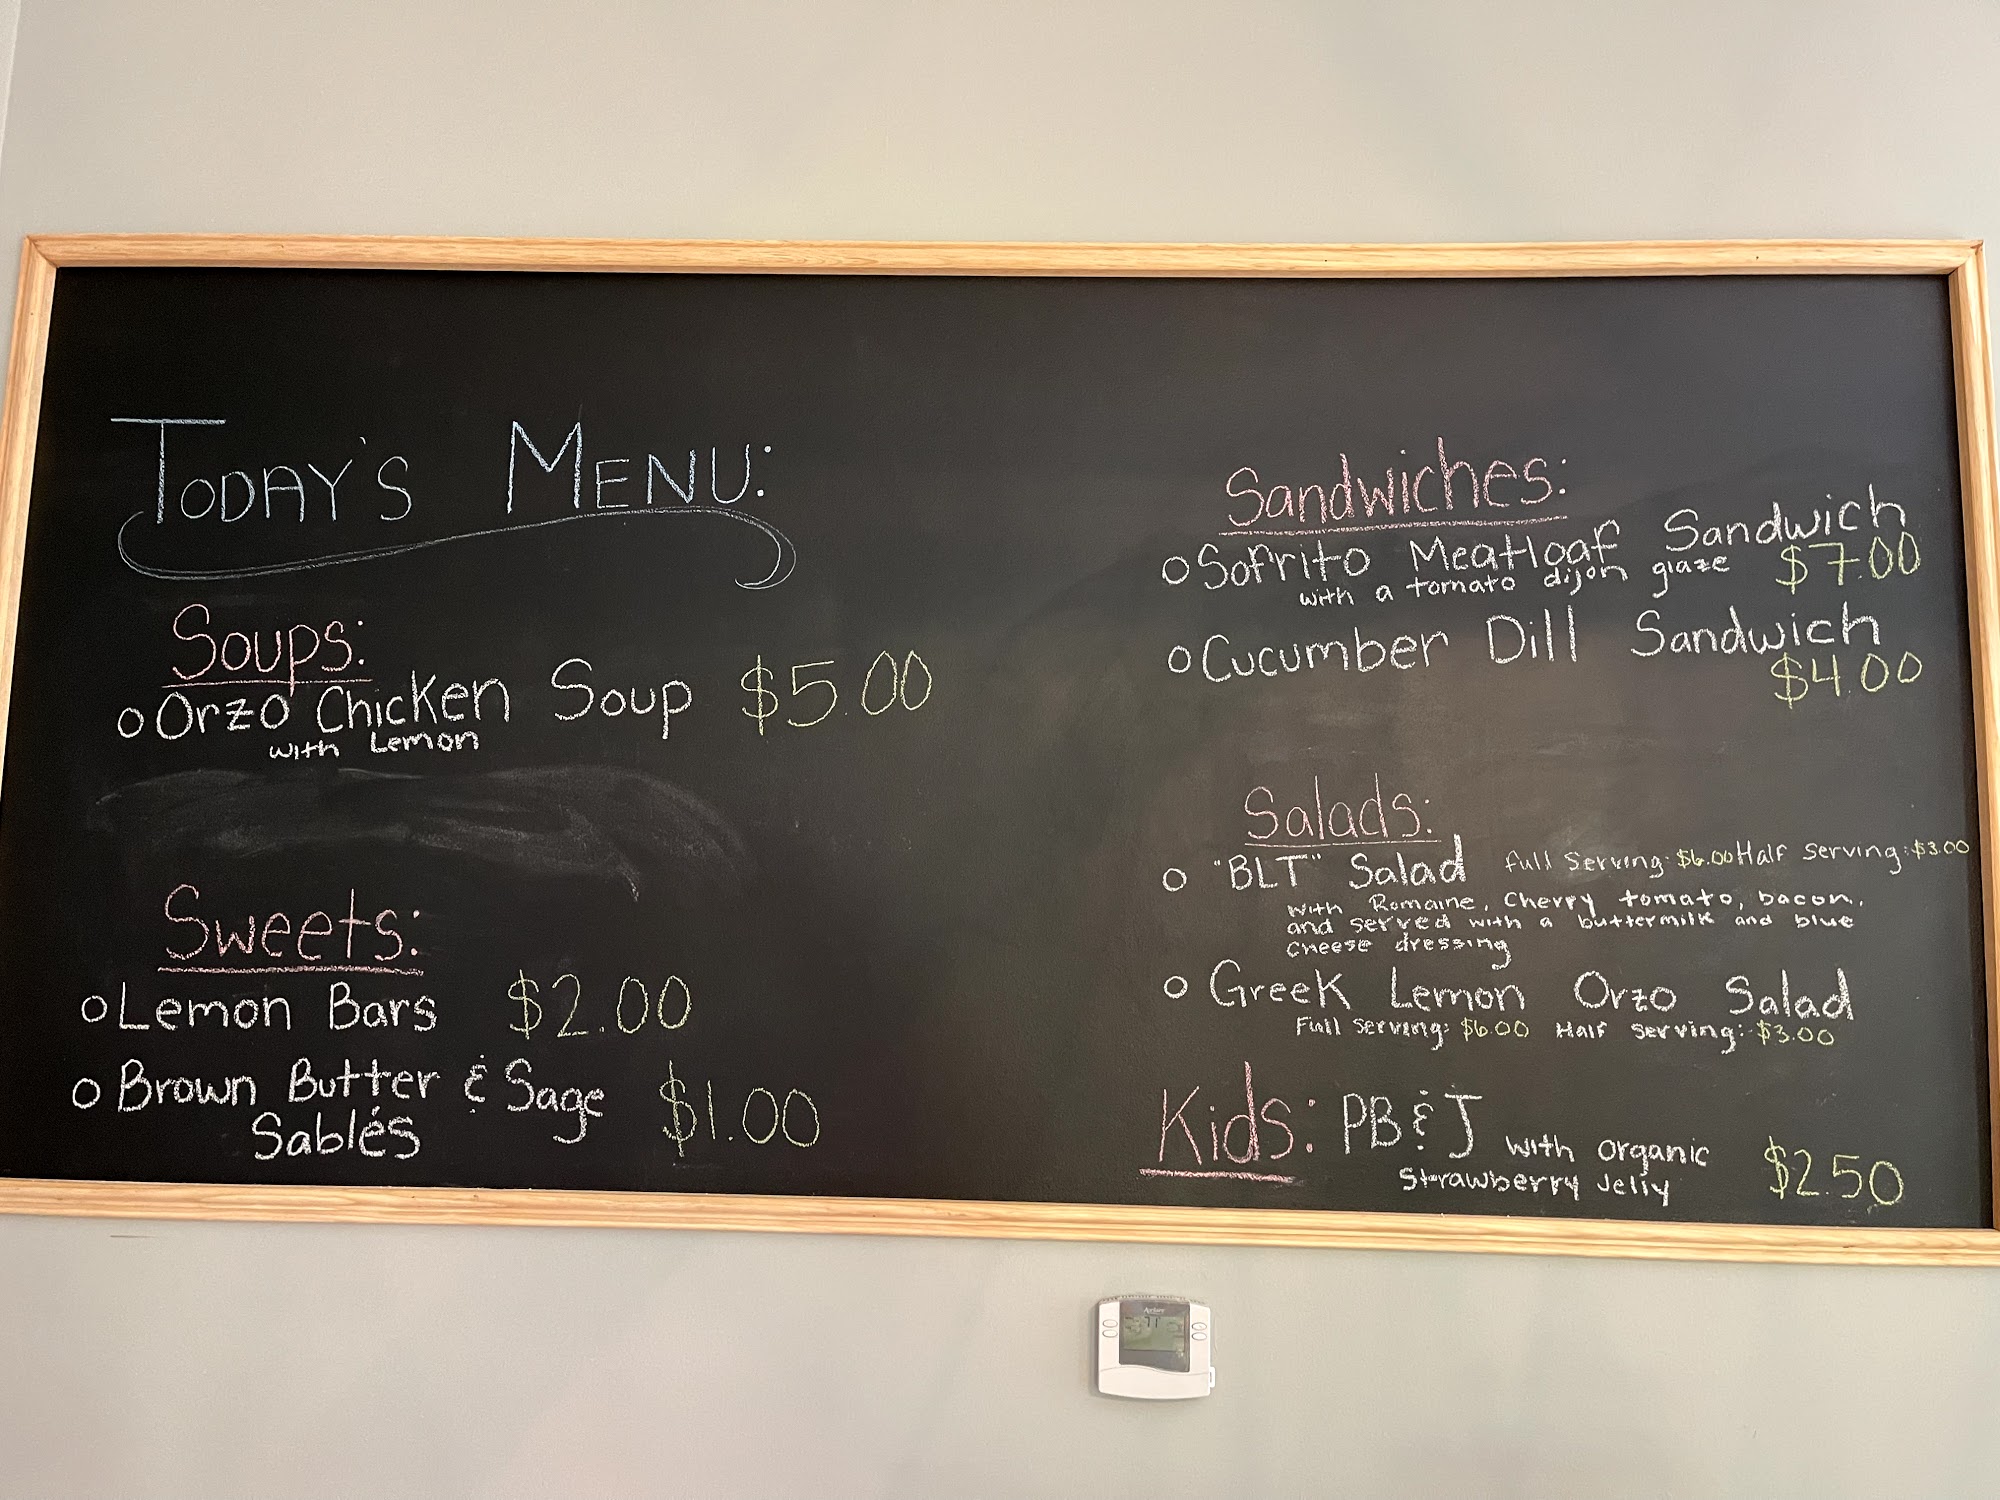 TODAY'S MENU:
Soups:
Orzo Chicken Soup $5.00
with Lemon
Sweets:
Lemon Bars $2.00
Brown Butter & Sage $1.00
Sablés
Sandwiches:
Sofrito Meatloaf Sandwich
with a tomato dijon glaze $7.00
Cucumber Dill Sandwich
$4.00
Salads:
"BLT" Salad Full Serving: $6.00 Half Serving: $3.00
with Romaine, Cherry tomato, bacon,
and served with a buttermilk and blue
cheese dressing
Greek Lemon Orzo Salad
Full Serving: $6.00 Half Serving: $3.00
Kids: PB & J with organic
Strawberry Jelly $2.50
71